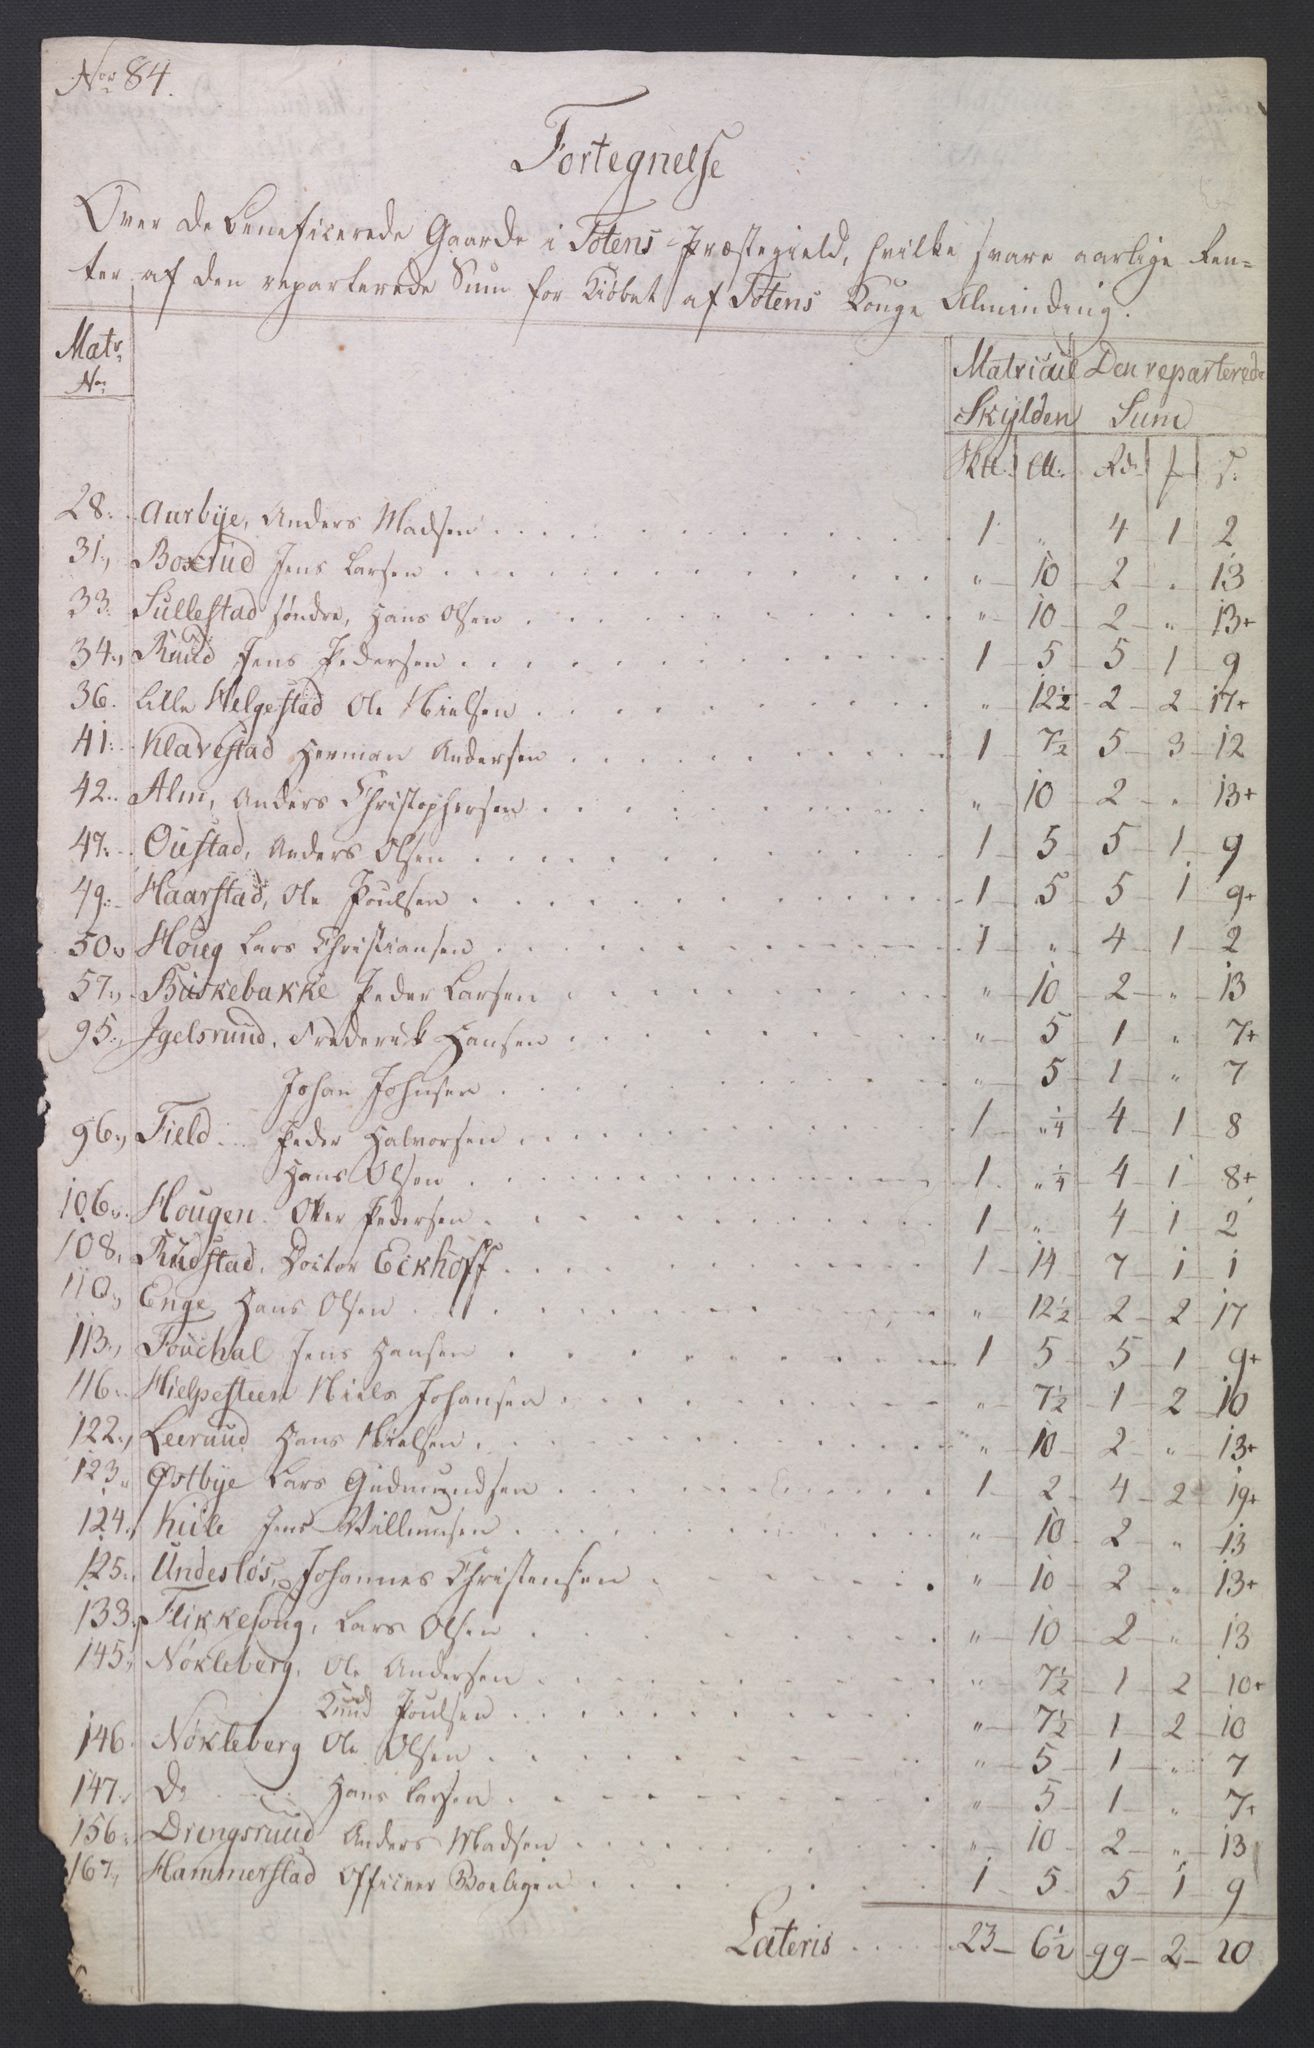 No 84.
Fortegnelse
Over de beneficerede Gaarde i Totens Præstegield, hvilke svare aarlige Ren=
ter af den reparterede Sum for Kiøbet af Totens Konge Alminding.
Matr. No. Matricul Skylden Den reparterede Sum
Rd.
28. Aurbye, Anders Madsen 1 „ 4 1 2
31. Boxrud Jens Larsen „ 10 2 „ 13
33. Sullestad søndre, Hans Olsen „ 10 2 „ 13+
34. Ruud Jens Pedersen 1 5 5 1 9
36. Lille Helgestad Ole Nielsen „ 12½ 2 2 17+
41. Klavestad Herman Andersen 1 7½ 5 3 12
42. Alm, Anders Christophersen „ 10 2 „ 13+
47. Oustad, Anders Olsen 1 5 5 1 9
49. Haarstad, Ole Poulsen 1 5 5 1 9+
50. Houg Lars Christiansen 1 „ 4 1 2
57. Biskebakke Peder Larsen „ 10 2 „ 13
95. Igelsruud, Frederick Hansen „ 5 1 „ 7+
Johan Johnsen „ 5 1 „ 7
96. Field Peder Halvorsen 1 „¼ 4 1 8
Hans Olsen 1 „¼ 4 1 8+
106. Hougen Peder Pedersen 1 „ 4 1 2
108. Rudstad, Doctor Eckhoff 1 14 7 1 1
110. Enge, Hans Olsen „ 12½ 2 2 17
113. Fouchal Jens Hansen 1 5 5 1 9+
116. Hielpesteen Niels Johansen „ 7½ 1 2 10
122. Leeruud Hans Nielsen „ 10 2 „ 13+
123. Østbye Lars Gudmundsen 1 2 4 2 19+
124. Kiile Jens Willumsen „ 10 2 „ 13
125. Undesløs, Johannes Christensen „ 10 2 „ 13+
133. Flikkesong, Lars Olsen „ 10 2 „ 13
145. Nøkleberg, Ole Andersen „ 7½ 1 2 10+
Knud Poulsen „ 7½ 1 2 10
146. Nøkleberg Ole Olsen „ 5 1 „ 7
147. Do Hans Larsen „ 5 1 „ 7+
156. Drengsruud Anders Madsen „ 10 2 „ 13
167. Hammerstad Officeer Boeligen 1 5 5 1 9
Lateris 23 6½ 99 2 20